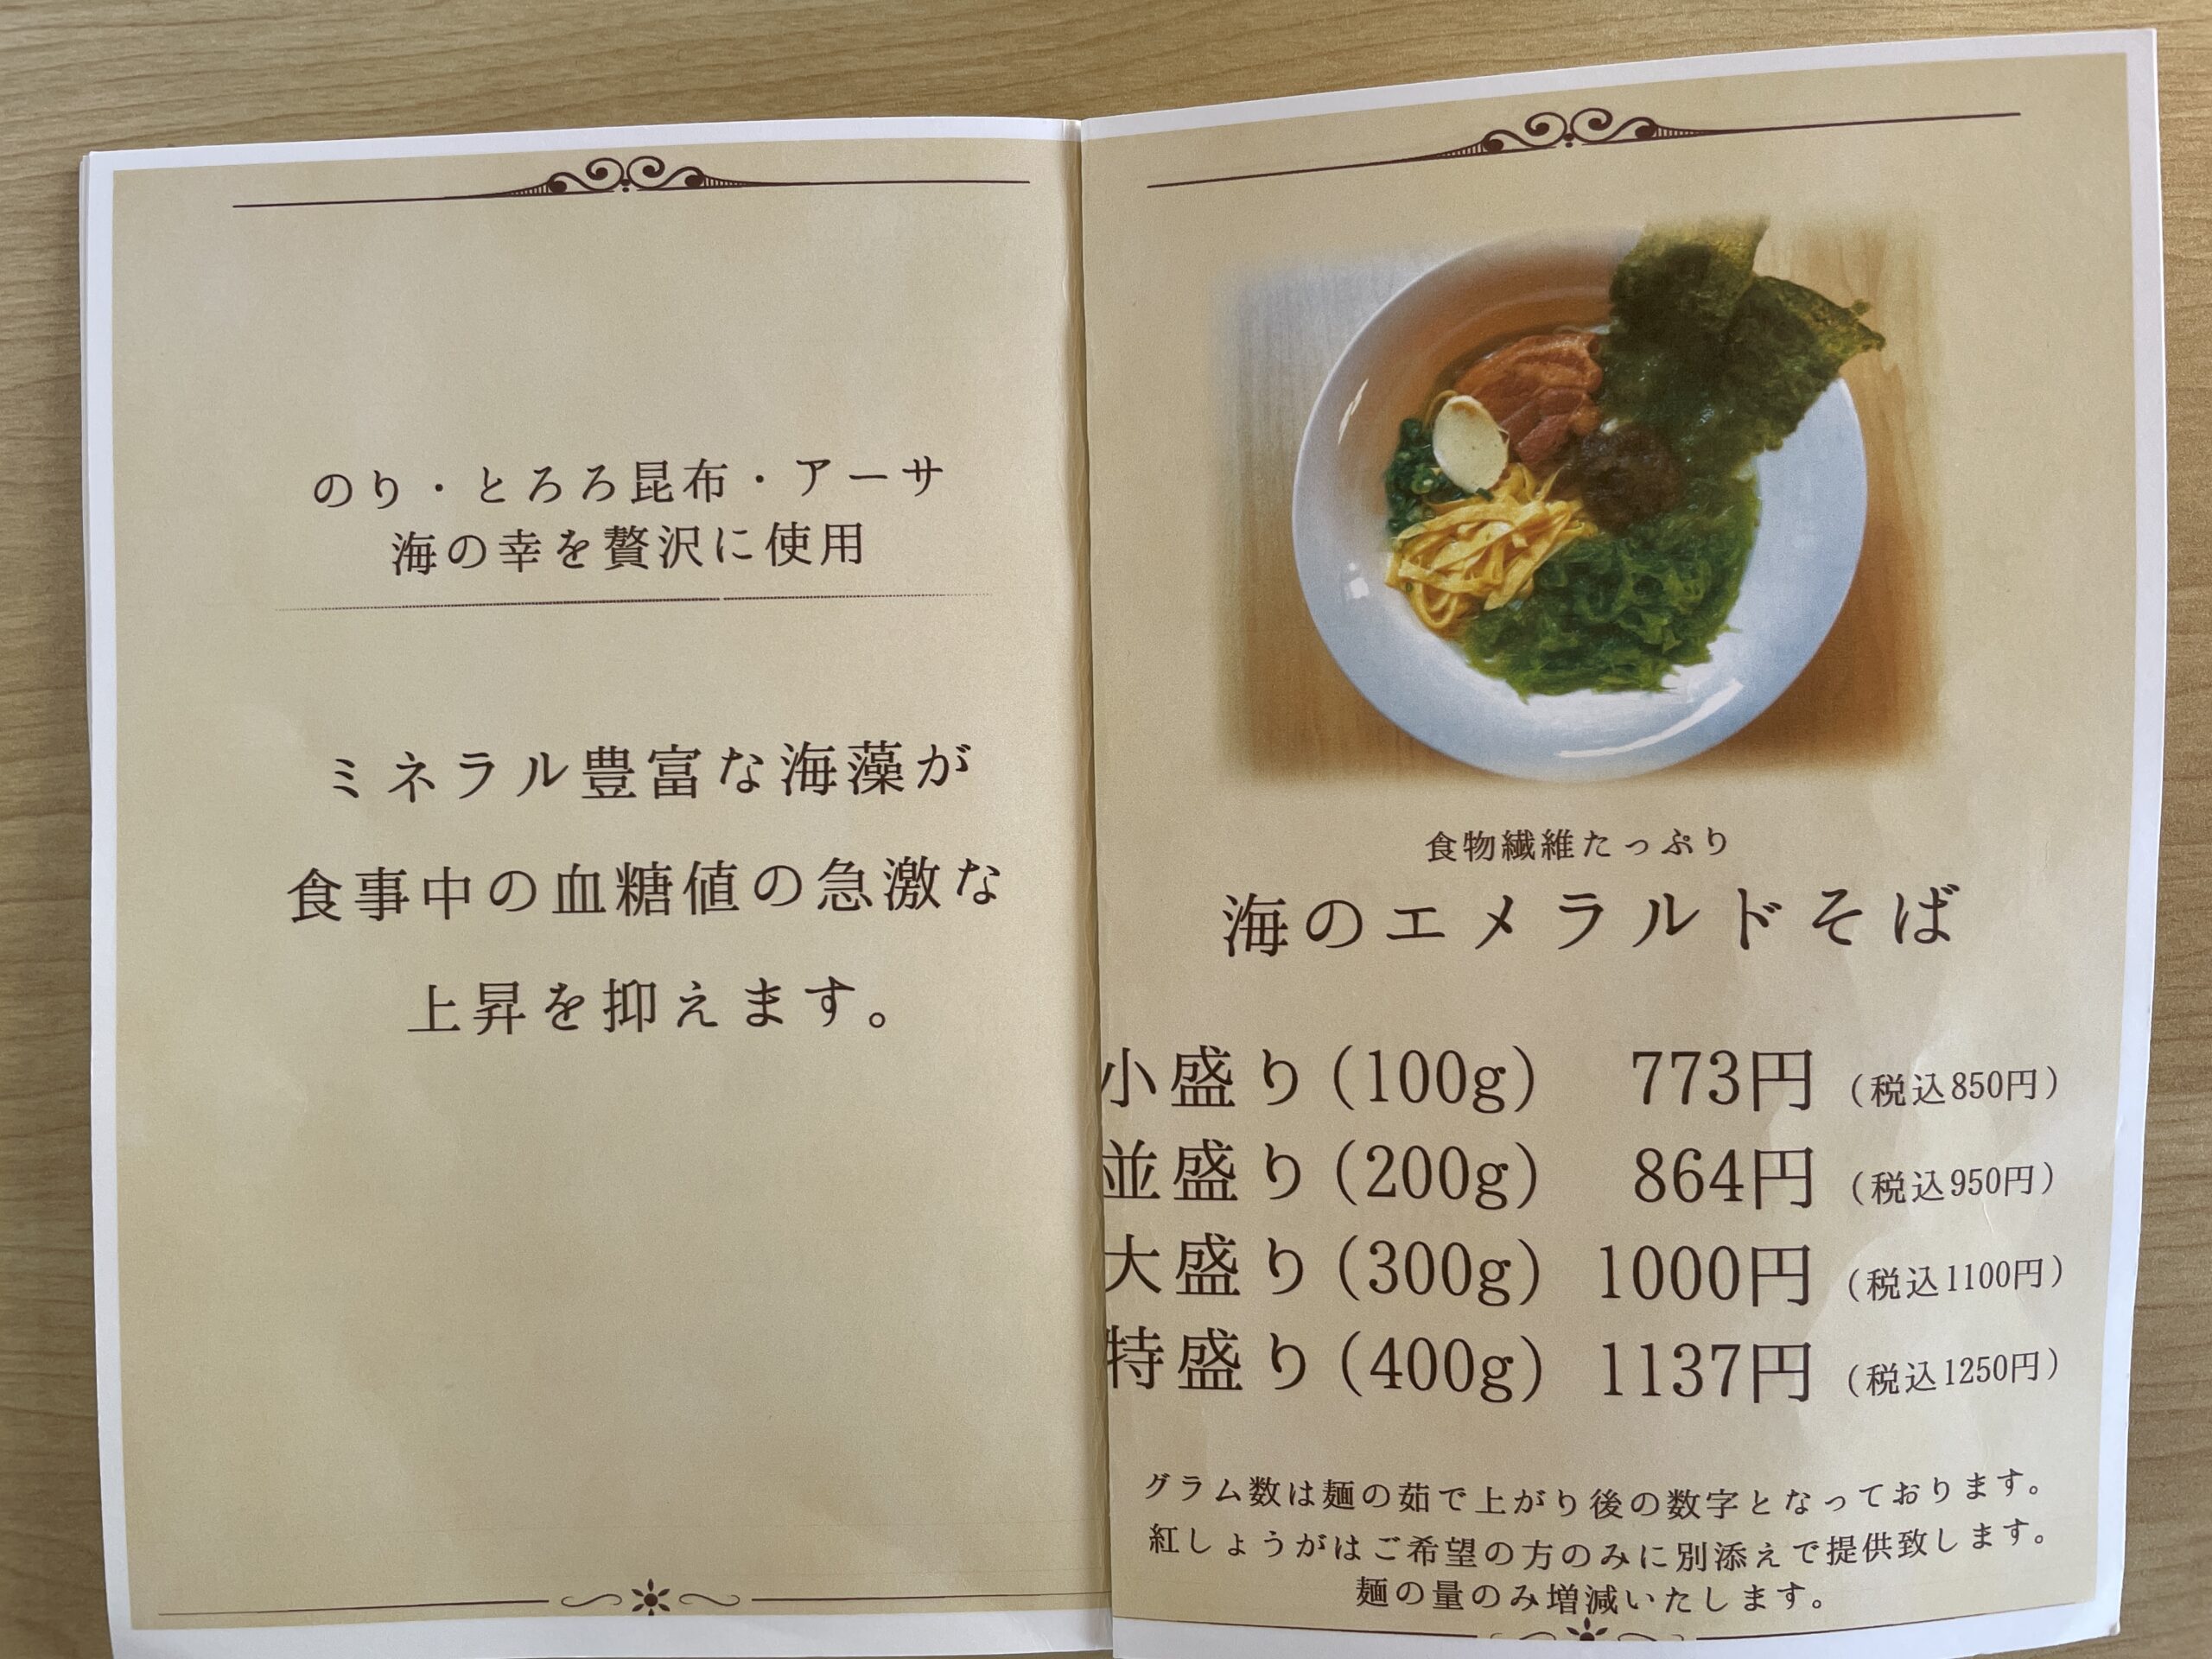 のり・とろろ昆布・アーサ
海の幸を贅沢に使用
ミネラル豊富な海藻が
食事中の血糖値の急激な
上昇を抑えます。
食物繊維たっぷり
海のエメラルドそば
小盛り(100g) 773円 (税込850円)
並盛り(200g) 864円 (税込950円)
大盛り(300g) 1000円 (税込1100円)
特盛り(400g) 1137円 (税込1250円)
グラム数は麺の茹で上がり後の数字となっております。
紅しょうがはご希望の方のみに別添えで提供致します。
麺の量のみ増減いたします。